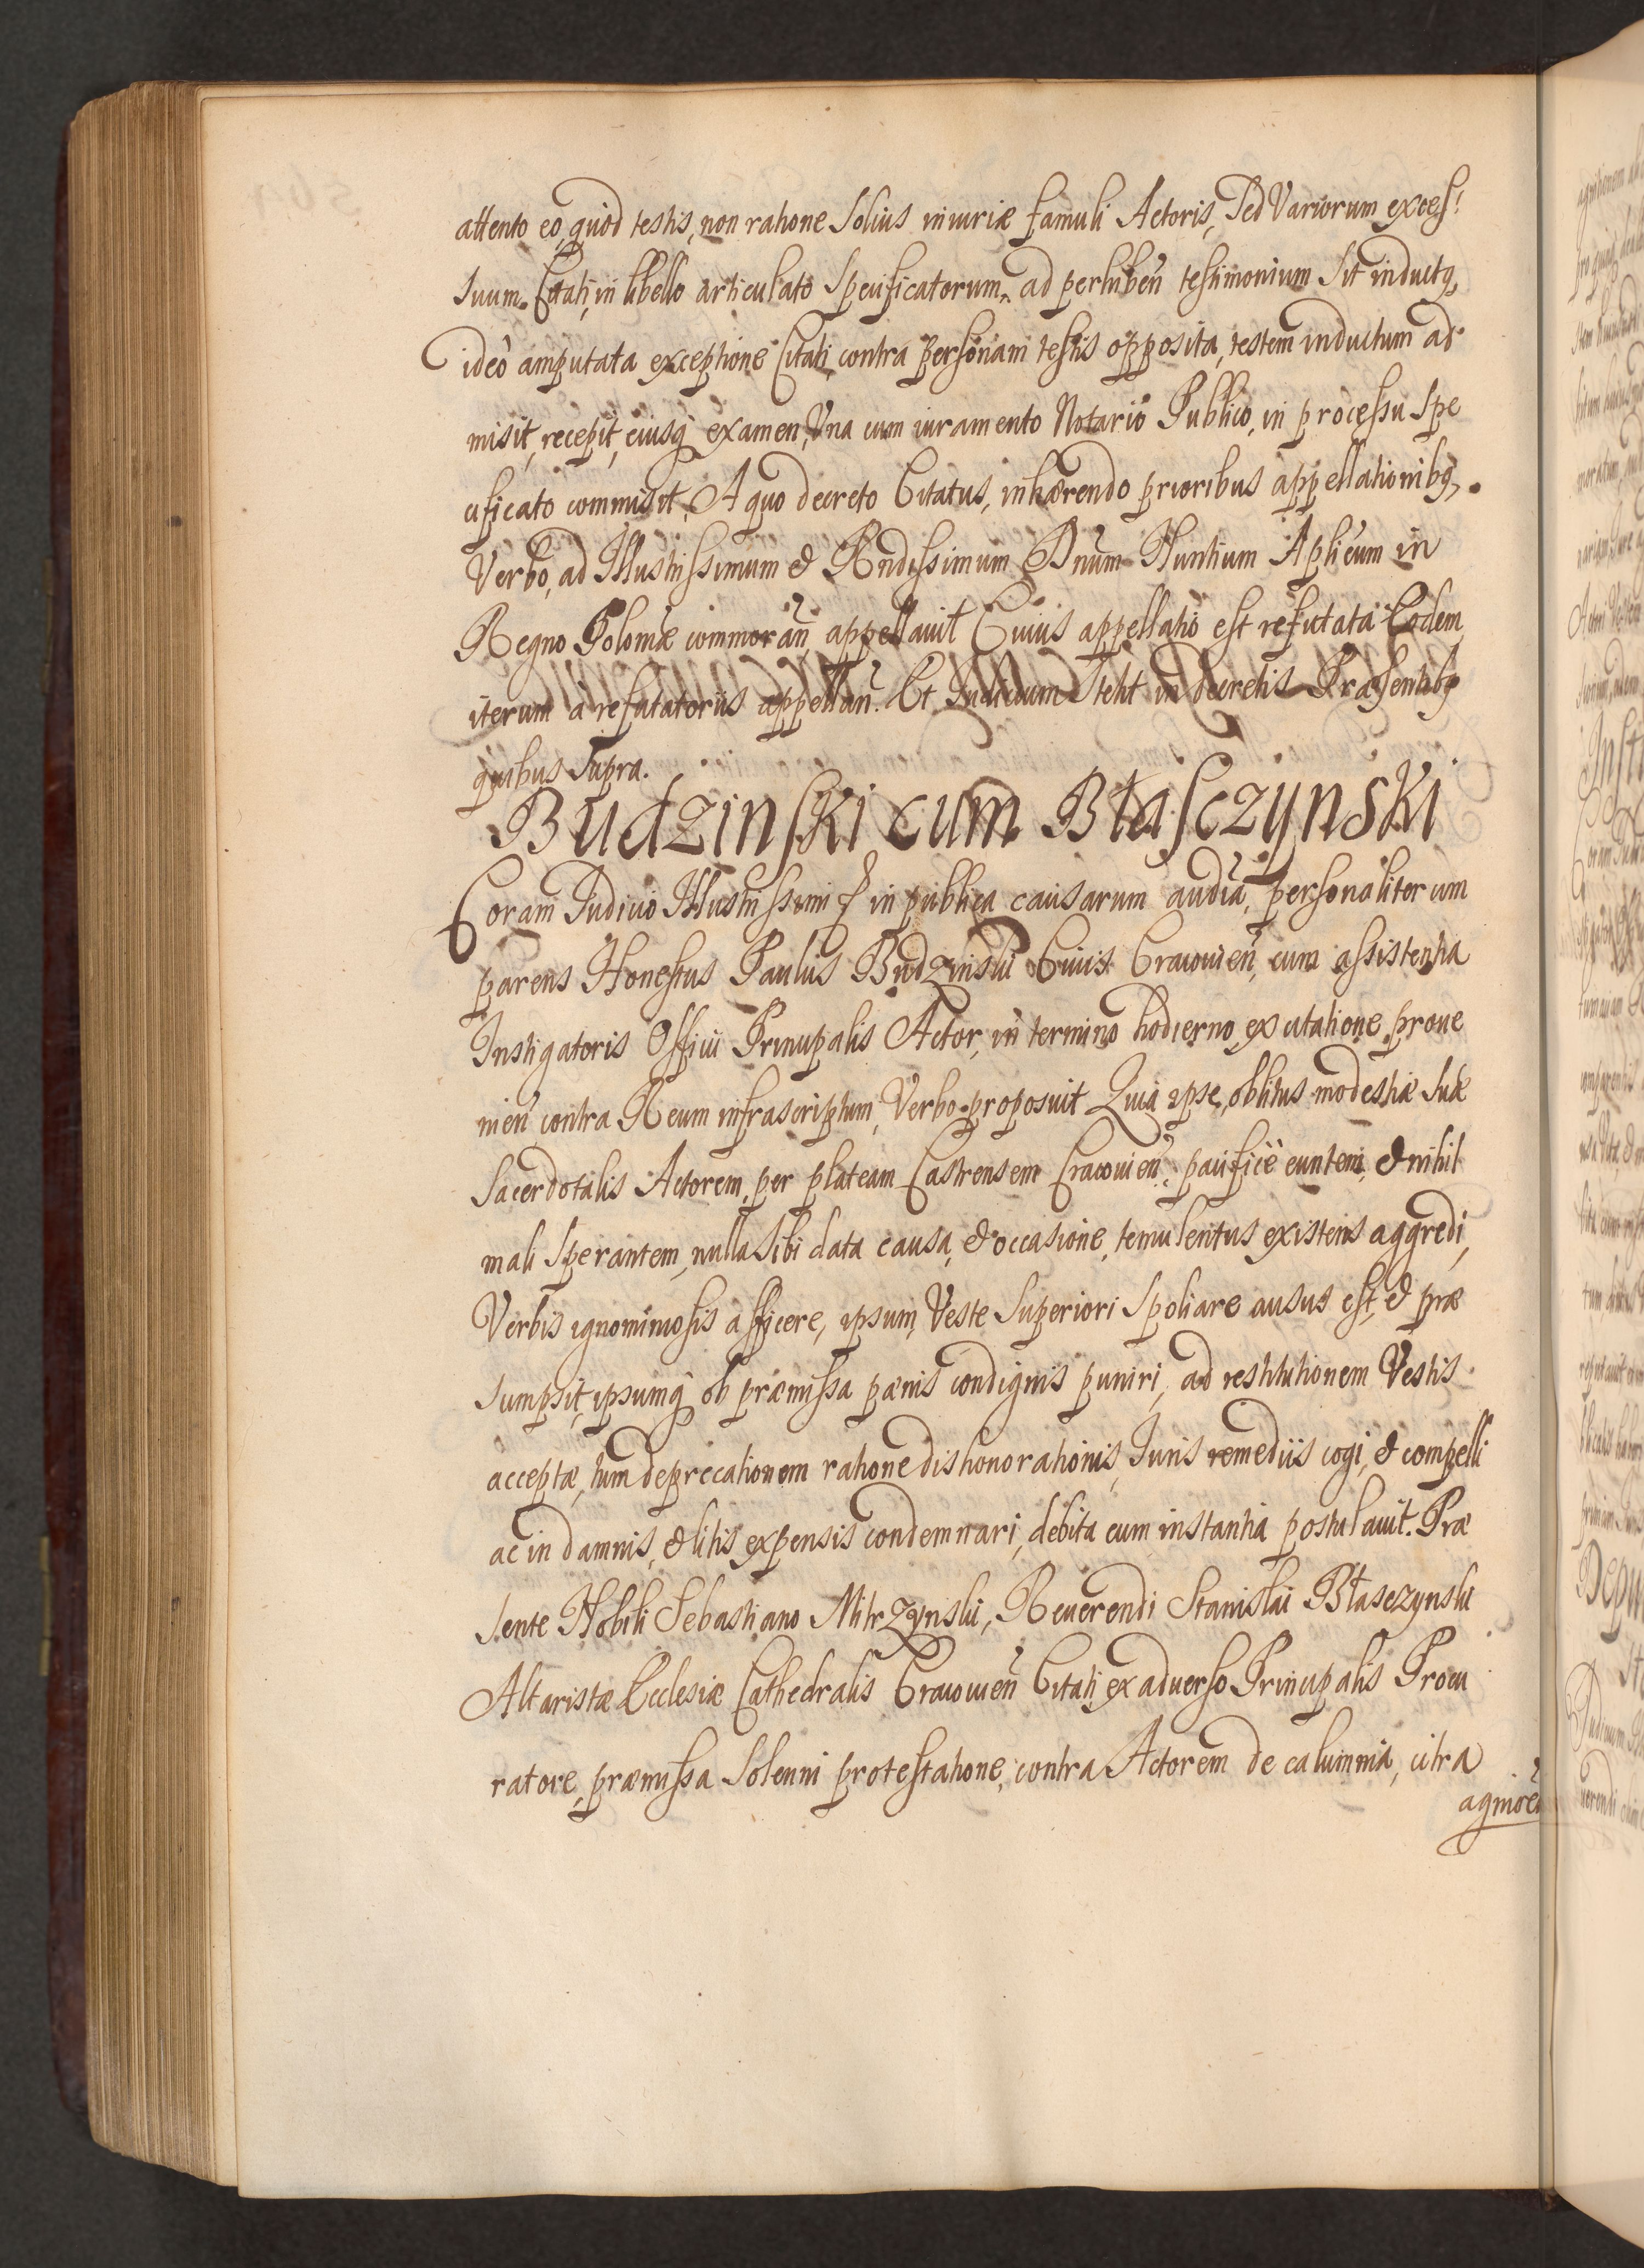 attento eo, quod testis, non ratione solius iniuriæ famuli Actoris, sed Variorum excess:
suum Citati, in libello articulato specificatorum, ad perhiben̄ testimonium sit inductq;
ideò amputata exceptione Citati, contra personam testis opposita, testem inductum ad
misit, recepit, eiusq; examen, Vna cum iuramento Notario Publico, in processu spe
cificato commisit, A quo decreto Citatus, inhærendo prioribus appellationibq;
Verbo, ad Illustrissimum & Rndissimum Dnum Nuntium Aplicum in
Regno Poloniæ commoran̄, appellauit Cuius appellatio est refutata Eodem
iterum à refutatoriis appellan̄. Et Iudicium stetit in decretis Præsentibq;
quibus supra.
Budzinski cum Błasczynski
Coram Iudicio Illustrissimi &c in publica causarum audīa, personaliter com
parens Honestus Paulus Budzinski Ciuis Cracouien̄, cum assistentia
Instigatoris Officii Principalis Actor, in termino hodierno, ex citatione proue
nien̄ contra Reum infrascriptum, Verbo proposuit Quia ipse, oblitus modestiæ suæ
Sacerdotalis Actorem, per plateam Castrensem Cracouien̄, pacificè euntem, & nihil
mali sperantem, nulla sibi data causa, & occasione, temulentus existens aggredi,
Verbis ignominiosis afficere, ipsum, Veste superiori spoliare ausus est, & præ
sumpsit, ipsumq; ob præmissa pænis condignis puniri, ad restitutionem Vestis
acceptæ, tum deprecationem ratione dishonorationis, Iuris remediis cogi, & compelli
ac in damnis, & litis expensis condemnari, debita cum instantia postulauit. Præ
sente Nobili Sebastiano Mitrzynski, Reuerendi Stanislai Błasczynski
Altaristæ Ecclesiæ Cathedralis Cracouien̄ Citati ex aduerso Principalis Procu
ratore, præmissa solenni protestatione, contra Actorem de calumnia, citra